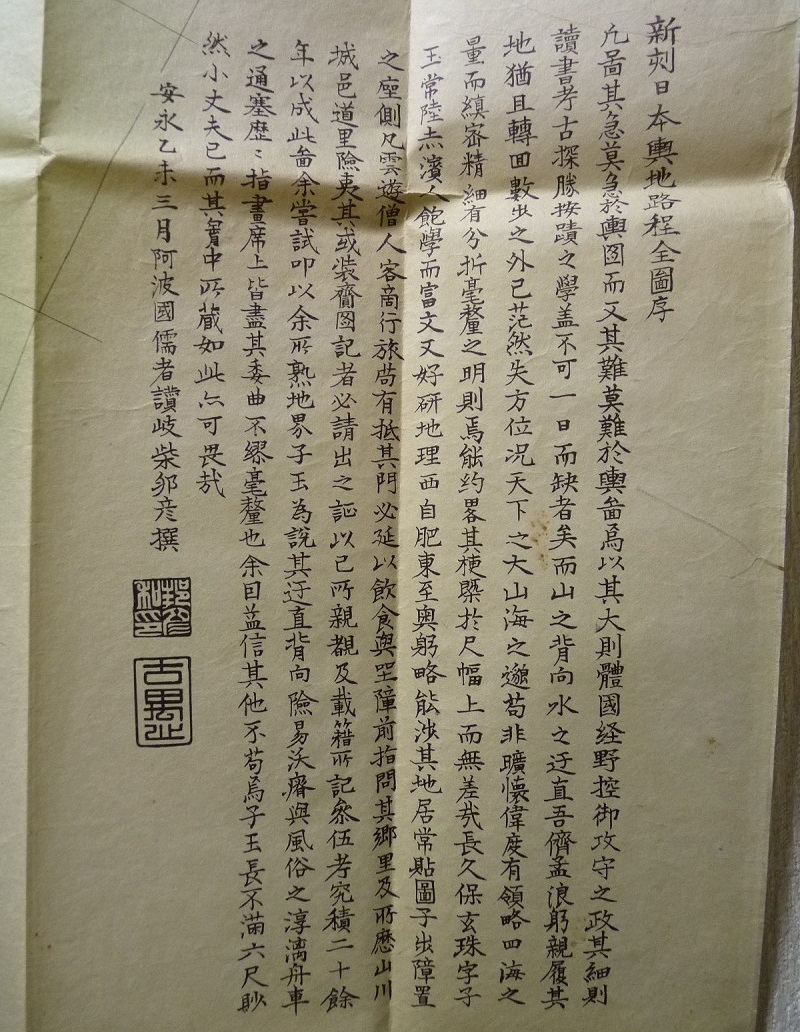 新刻日本輿地路程全圖序
凡啚其急莫急於輿图而又其難莫難於輿啚焉以其大則體國経野控御攻守之政其細則
讀書考古探勝按蹟之學盖不可一日而缺者矣而山之背向水之迂直吾儕孟浪躬親履其
地猶且轉回數出之外已茫然失方位况天下之大山海之邈苟非曠懷偉度有領略四海之
量而縝密精細有分折毫釐之明則焉能約畧其梗槩於尺幅上而無差哉長久保玄珠字子
玉常陸赤濱人飽學而富文又好研地理西自肥東至奥躬略能渉其地居常貼圖子出障置
之座側凡雲遊僧人客商行旅苟有抵其門必延以飲食與坐障前指問其郷里及所歴山川
城邑道里險夷其或装齎图記者必請出之証以己所親覩及載籍所記叅伍考究積二十餘
年以成此啚余嘗試叩以余所熟地界子玉為說其迂直背向險易沃瘠與風俗之淳漓舟車
之通塞歴〻指畫席上皆盡其委曲不繆毫釐也余因益信其他不苟焉子玉長不滿六尺眇
然小丈夫已而其胷中所蔵如此亦可畏哉
安永乙未三月阿波國儒者讃岐柴邦彦撰